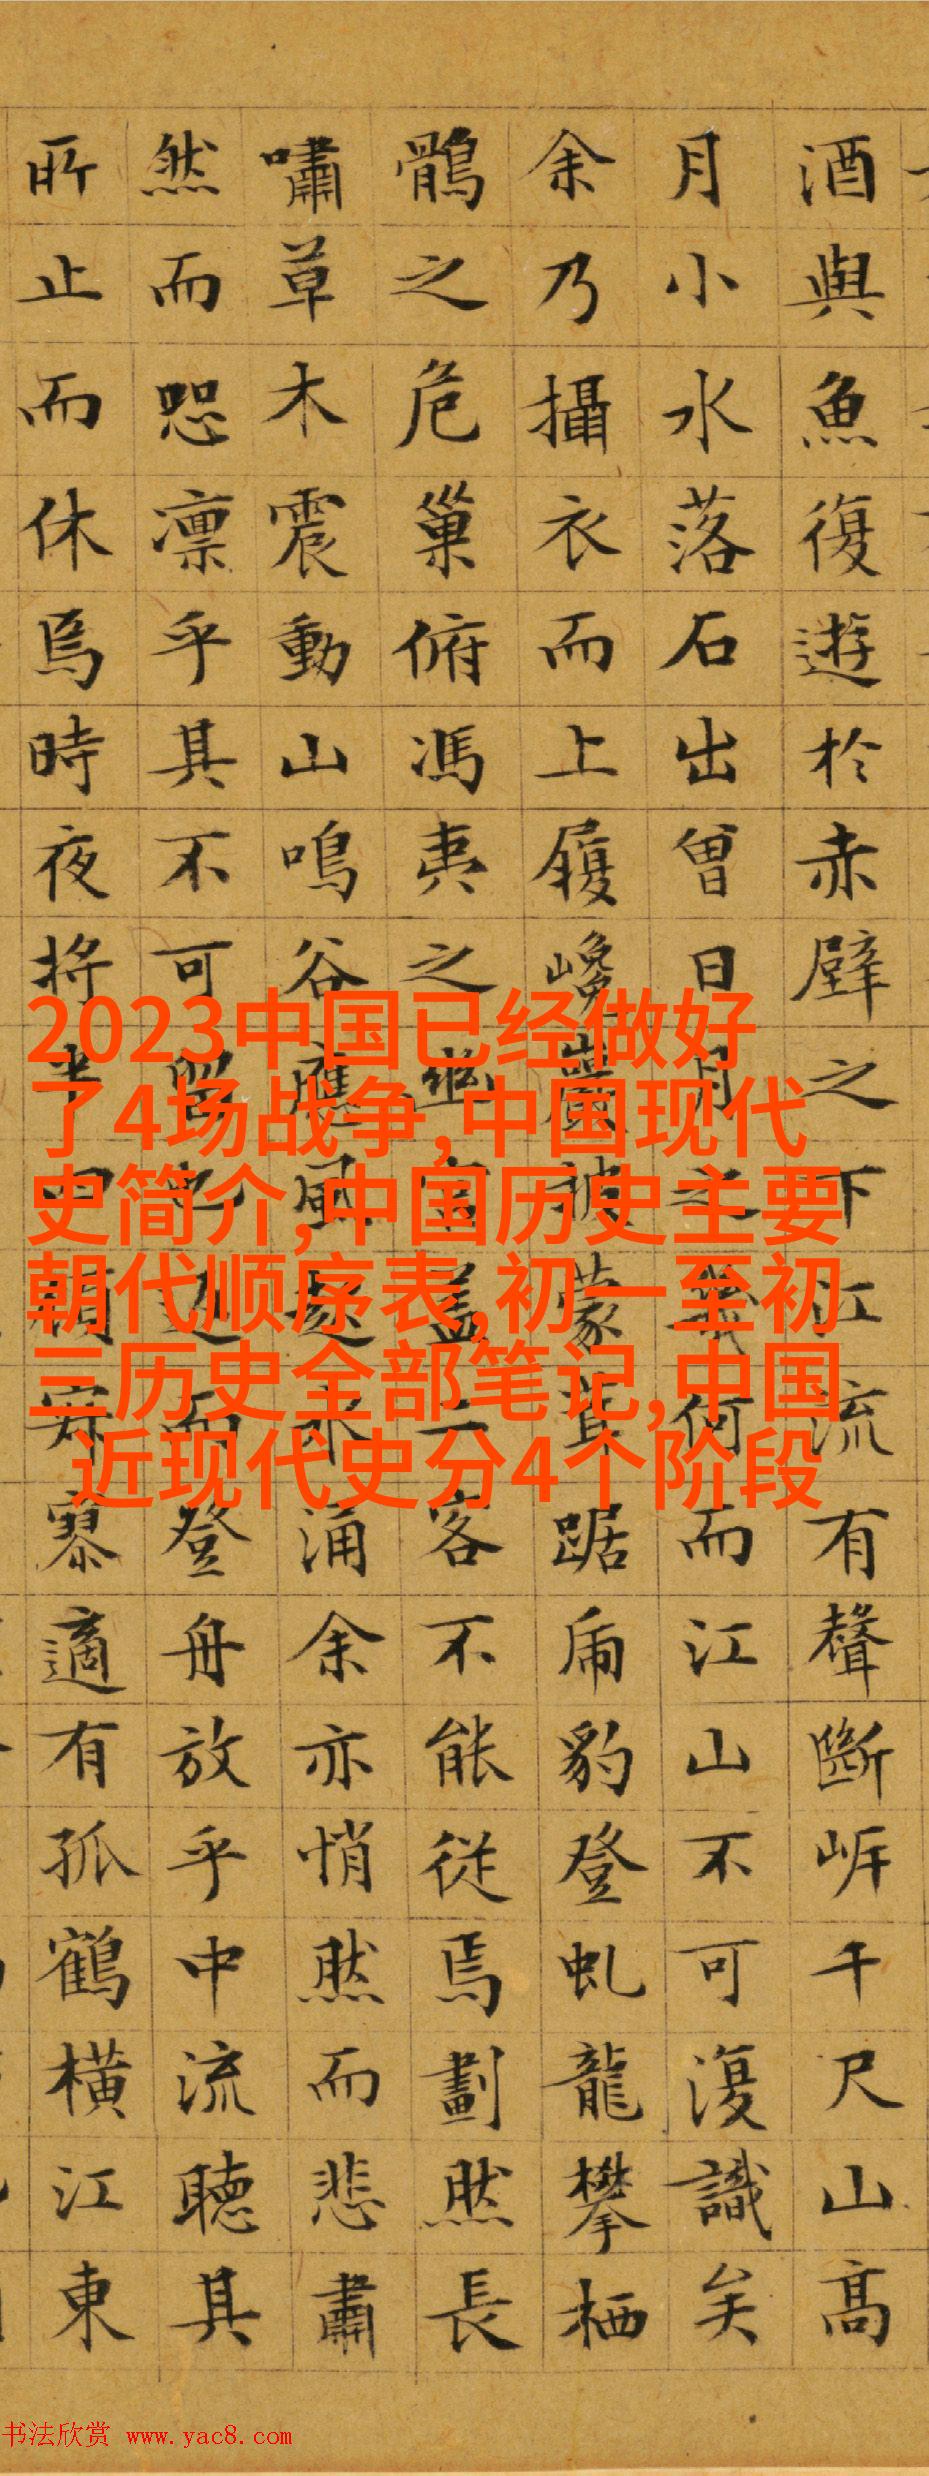 酒與魚復遊於赤壁之下江流有聲斷岸千尺山高
月小水落石出曾日月之幾何而江山不可復識矣
余乃攝衣而上履巉巖披蒙茸踞虎豹登虬龍攀栖
鶻之危巢俯馮夷之幽宮蓋二客不能從焉劃然長
嘯草木震動山鳴谷應風起水涌余亦悄然而悲肅
然而恐凛乎其不可留也返而登舟放乎中流聽其
所止而休焉時夜將半四顧寂寥適有孤鶴橫江東
2023中国已经做好
了4场战争,中国现代
史简介,中国历史主要
朝代顺序表,初一至初
三历史全部笔记,中国
近现代史分4个阶段
书法欣赏 www.yac8.com